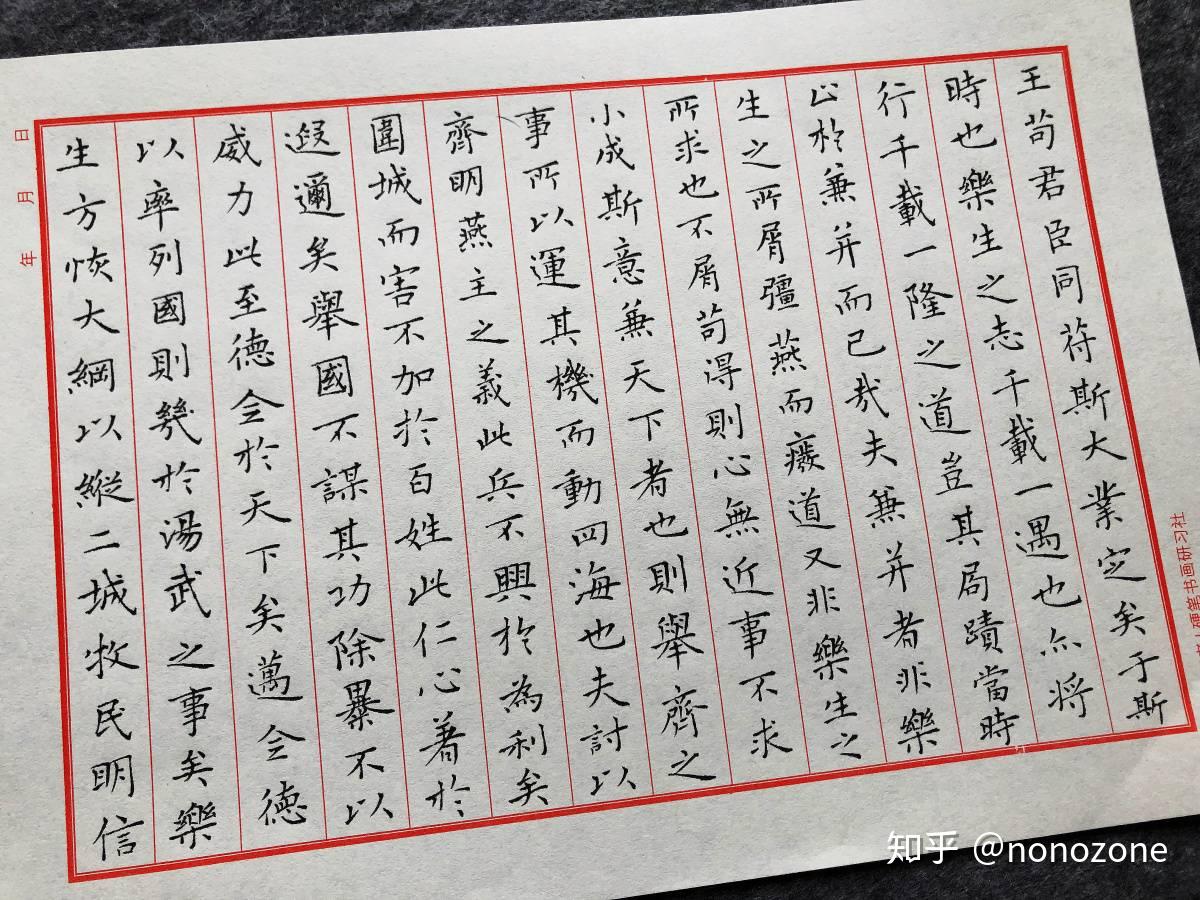 王苟君臣同符斯大業定矣于斯
時也樂生之志千載一遇也亦将
行千載一隆之道豈其局蹟當時
止於兼并而已哉夫兼并者非樂
生之所屑彊燕而癈道又非樂生之
所求也不屑苟得則心無近事不求
小成斯意兼天下者也則舉齊之
事所以運其機而動四海也夫討以
齊明燕主之義此兵不興於為利矣
圍城而害不加於百姓此仁心著於
遐邇矣舉國不謀其功除暴不以
威力此至德全於天下矣邁全德
以率列國則幾於湯武之事矣樂
生方恢大綱以縱二城牧民明信
年月日
硬笔书画研习社
知乎 @nonozone